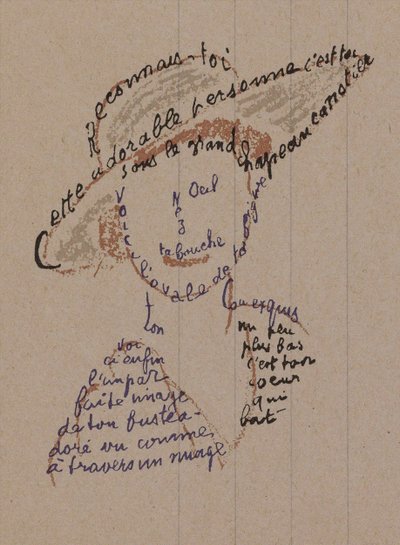 Reconnais-toi
Cette adorable personne c'est toi
sous le grand chapeau canotier
Oeil
Nez
ta bouche
Voici l'ovale de ta figure
Ton
cou exquis
voi
ci enfin
l'impar
faite image
de ton buste a-
doré vu comme
à travers un nuage
un peu
plus bas
c'est ton
coeur
qui
bat